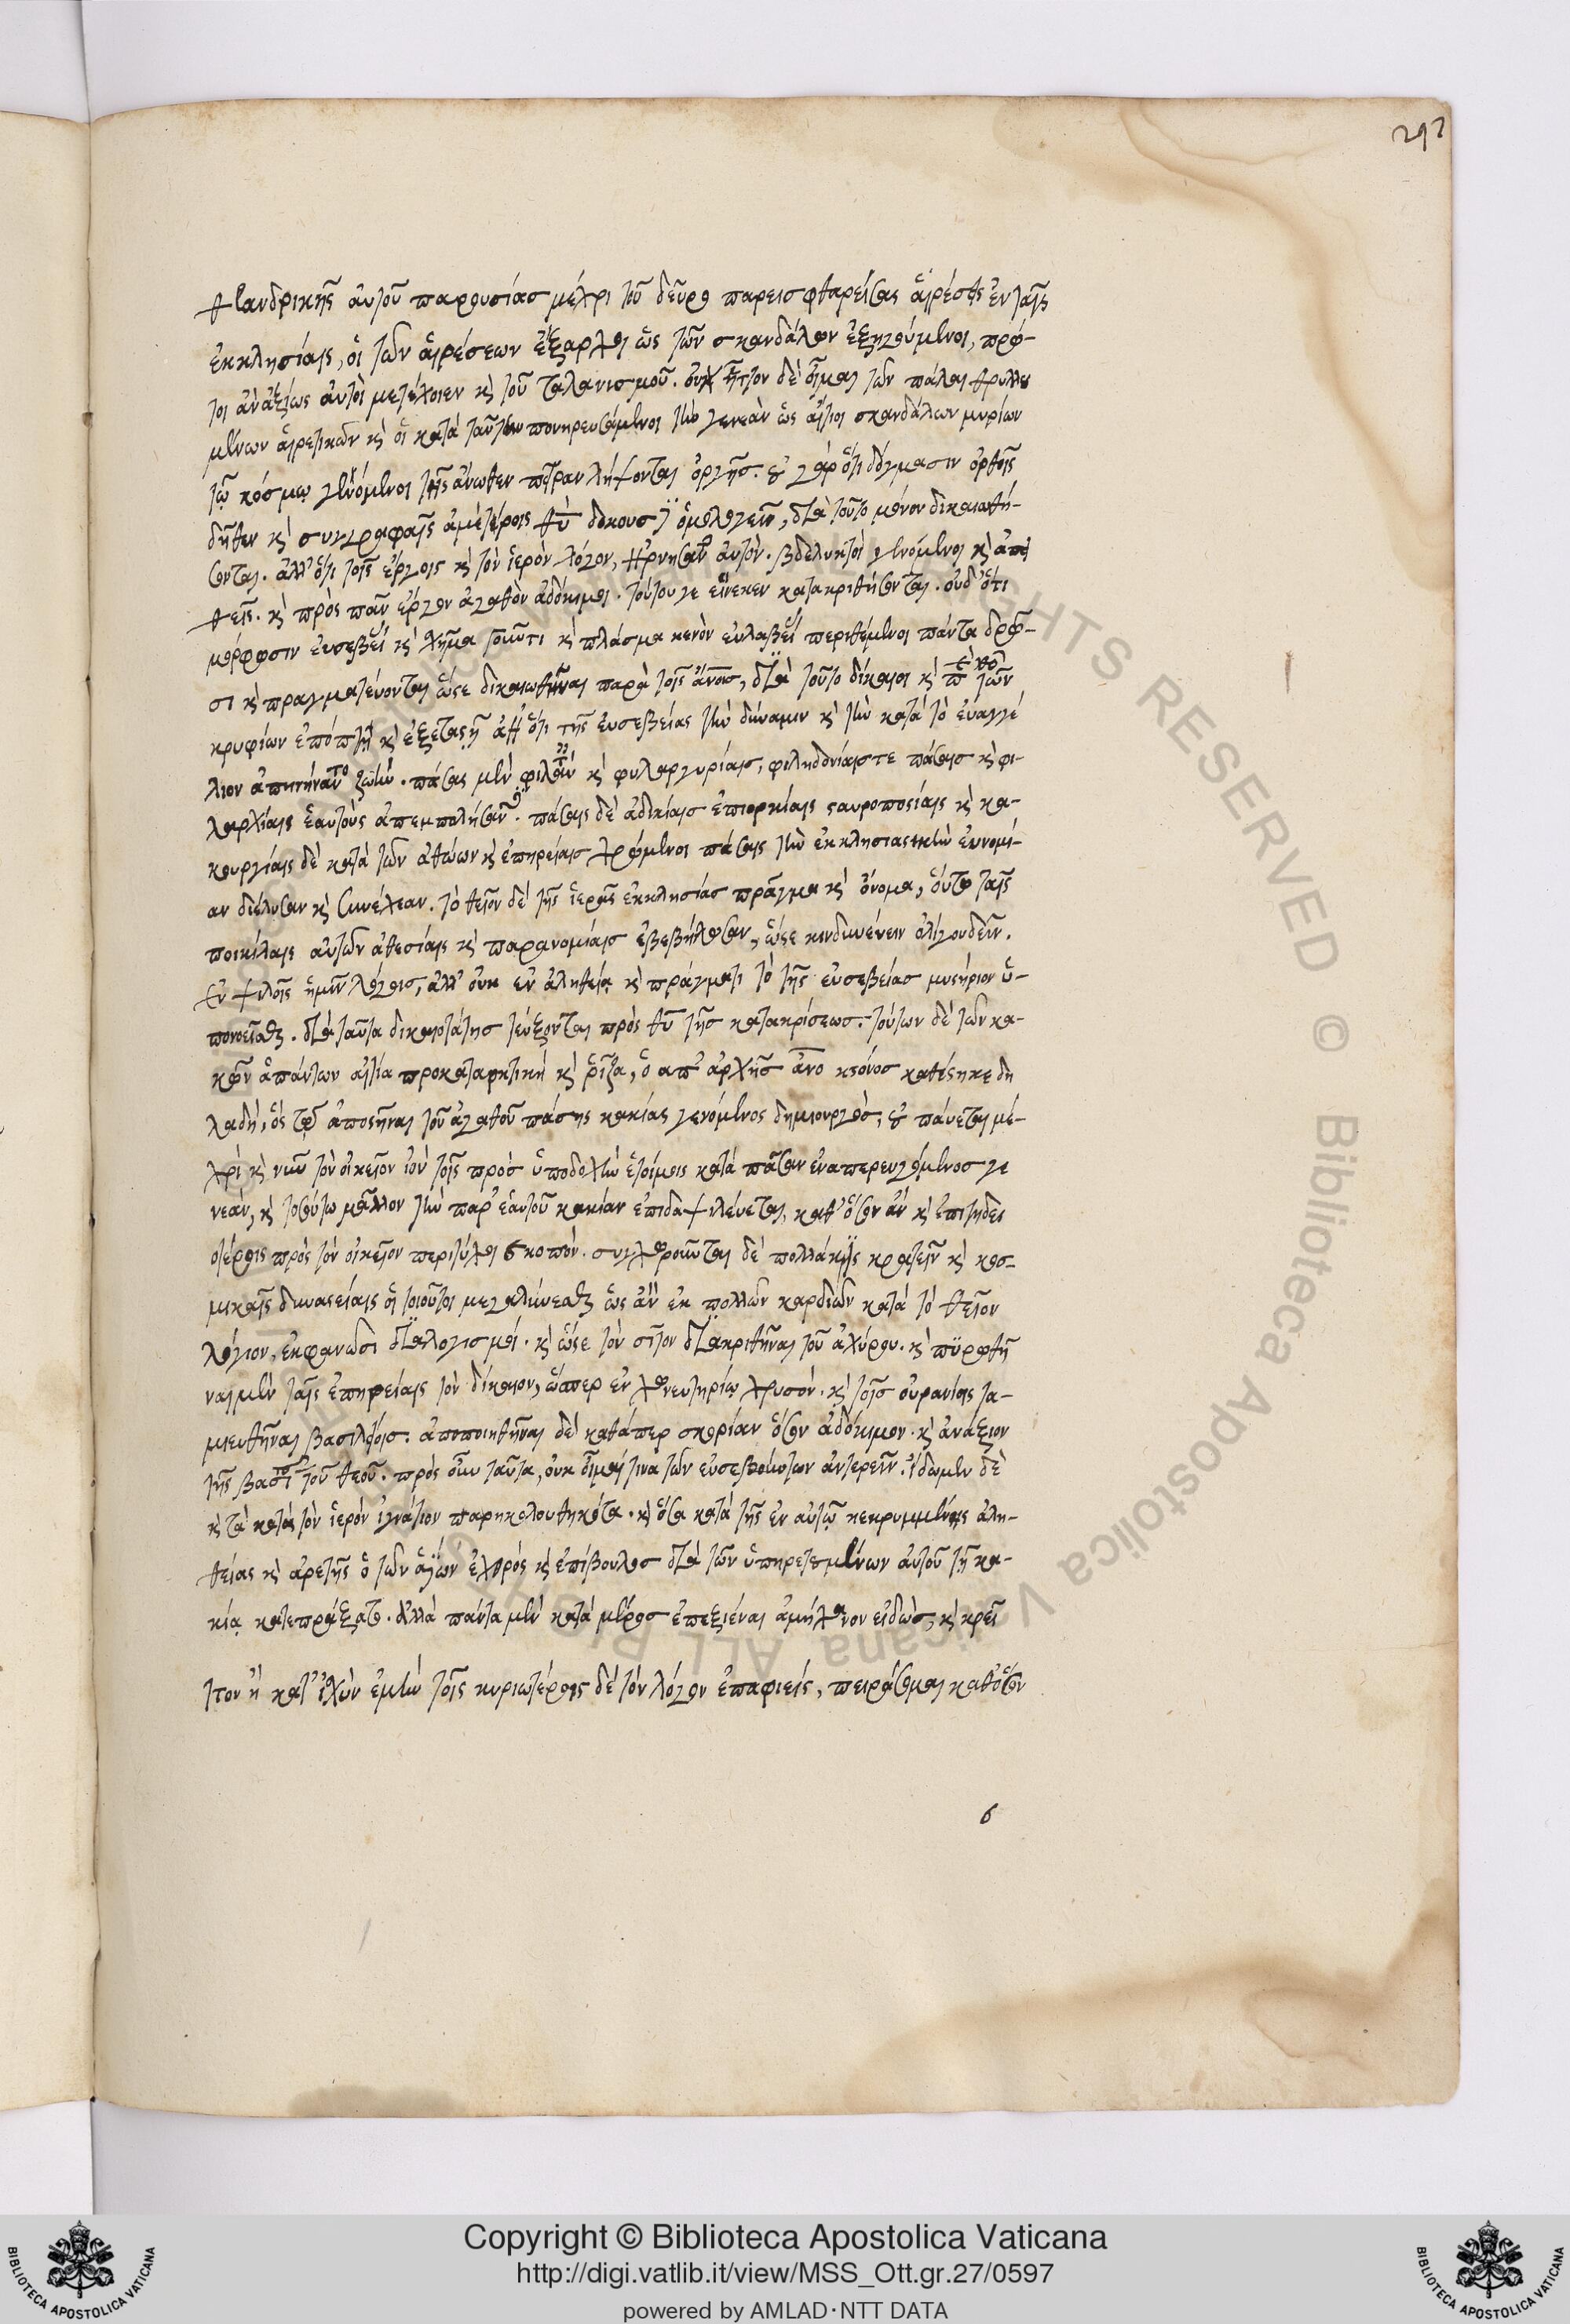 297
θεανδρικῆς αὐτοῦ παρουσίας μέχρι τοῦ δεῦρο παρεισφθαρείσας αἱρέσεις ἐν ταῖς
ἐκκλησίαις, οἱ τῶν αἱρέσεων ἔξαρχοι ὡς τῶν σκανδάλων ἐξηγούμενοι, πρῶ-
τοι ἀναξίως αὐτοὶ μετέχοιεν κ τοῦ ταλανισμοῦ. οὐχ ἧττον δὲ οἶμαι τῶν πάλαι θρυλλου
μένων αἱρετικῶν κ οἱ κατὰ ταύτην πονηρευσάμενοι τὴν γενεὰν ὡς αἴτιοι σκανδάλων μυρίων
τῷ κόσμῳ γενόμενοι τῆς ἄνωθεν πεῖραν λήψονται ὀργῆς. οὐ γὰρ ὅτι δόγμασιν ὀρθοῖς
δῆθεν κ συγγραφαῖς ἡμετέροις θν δοκοῦσιν ὁμολογεῖν, διὰ τοῦτο μόνον δικαιωθή-
σονται. ἀλλ' ὅτι τοῖς ἔργοις κ τὸν ἱερὸν λόγον, ἠρνήσαντο αὐτόν. βδελυκτοὶ γενόμενοι κ ἀπει
θεῖς. κ πρὸς πᾶν ἔργον ἀγαθὸν ἀδόκιμοι. τούτου γε εἵνεκεν κατακριθήσονται. οὐδ' ὅτι
μόρφωσιν εὐσεβείας κ σχῆμα κ πλάσμα κενὸν εὐλαβείας περιθέμενοι πάντα δρῶ-
σι κ πραγματεύονται ὥστε δικαιωθῆναι παρὰ τοῖς ἀνοις, διὰ τοῦτο δίκαιοι κ τῶν
κρυφίων ἐπόπτῃ κ ἐξεταστῇ ἀλλ' ὅτι τῆς εὐσεβείας τὴν δύναμιν κ τὴν κατὰ τὸ εὐαγγέ
λιον ἀπηρνήσαντο ζωήν. πάσαις μὲν κ φυλαργυρίαις, φιληδονίαις τε πάσαις κ φι-
λαρχίαις ἑαυτοὺς ἀπεμπολήσαντες. πάσαις δὲ ἀδικίαις ἐπιορκίαις σαυροποσίαις κ κα-
κουργίαις δὲ κατὰ τῶν ἀθώων κ ἐπηρείαις χρώμενοι πάσαις τὴν ἐκκλησιαστικὴν εὐνομί-
αν διέλυσαν κ συνέχεαν. τὸ θεῖον δὲ τῆς ἱερᾶς ἐκκλησίας πρᾶγμα κ ὄνομα, οὕτω ταῖς
ποικίλαις αὐτῶν ἀθεσίαις κ παρανομίαις ἐβεβήλωσαν, ὥστε κινδυνεύειν ὀλίγου δεῖν.
ἐν ψιλοῖς ἡμῖν λόγοις, ἀλλ' οὐκ ἐν ἀληθείᾳ κ πράγματι τὸ τῆς εὐσεβείας μυστήριον ὑ-
πονοεῖσθαι. διὰ ταῦτα δικαιοτάτης τεύξονται πρὸς θυ τῆς κατακρίσεως. τούτων δὲ τῶν κα-
κῶν ἁπάντων αἰτία προκαταρκτικὴ κ ῥίζα, ὁ ἀπ' ἀρχῆς ἀνοκτόνος καθέστηκε δη
λαδή, ὃς τῷ ἀποστῆναι τοῦ ἀγαθοῦ πάσης κακίας γενόμενος δημιουργός, οὐ παύεται μέ-
χρι κ νῦν τὸν οἰκεῖον ἰὸν τοῖς πρὸς ὑποδοχὴν ἑτοίμοις κατὰ πᾶσαν ἐναπερευγόμενος γε
νεάν, κ τοσούτω μᾶλλον τὴν παρ' ἑαυτοῦ κακίαν ἐπιδαψιλεύεται, καθ' ὅσον ἂν κ ἐπιτηδει
οτέροις πρὸς τὸν οἰκεῖον περιτύχοι σκοπόν. συγχωροῦνται δὲ πολλάκις κρατεῖν κ κοσ-
μικαῖς δυναστείαις οἱ τοιοῦτοι μεγαλύνεσθαι ὡς ἂν ἐκ πολλῶν καρδιῶν κατὰ τὸ θεῖον
λόγιον, ἐκφανῶσι διαλογισμοί. κ ὥστε τὸν σῖτον διακριθῆναι τοῦ ἀχύρου. κ πυρωθῆ
ναι μὲν ταῖς ἐπηρείαις τὸν δίκαιον, ὥσπερ ἐν χωνευτηρίῳ χρυσόν. κ τοῖς οὐρανίοις τα-
μιευθῆναι βασιλείοις. ἀποποιηθῆναι δὲ καθάπερ σκορίαν ὅσον ἀδόκιμον. κ ἀνάξιον
τῆς βασι τοῦ θεοῦ. πρὸς οὖν ταῦτα, οὐκ οἶμαί τινα τῶν εὐσεβούντων ἀντερεῖν. ἴδωμεν δὲ
κ τὰ κατὰ τὸν ἱερὸν ἰγνάτιον παρηκολουθηκότα. κ ὅσα κατὰ τῆς ἐν αὐτῷ κεκρυμμένης ἀλη-
θείας κ ἀρετῆς ὁ τῶν ἁγίων ἐχθρὸς κ ἐπίβουλος διὰ τῶν ὑπηρετουμένων αὐτοῦ τῇ κα-
κίᾳ κατεπράξατο. ἀλλὰ πάντα μὲν κατὰ μέρος ἐπεξιέναι ἀμήχανον εἰδώς, κ κρεῖ
ττον ἢ κατ' ἰσχὺν ἐμὴν τοῖς κυριωτέροις δὲ τὸν λόγον ἐπαφιείς, πειράσομαι καθόσον
ς
ALL RIGHTS RESERVED © Biblioteca Apostolica Vaticana
Copyright © Biblioteca Apostolica Vaticana
http://digi.vatlib.it/view/MSS_Ott.gr.27/0597
powered by AMLAD·NTT DATA
BIBLIOTECA APOSTOLICA VATICANA
BIBLIOTECA APOSTOLICA VATICANA